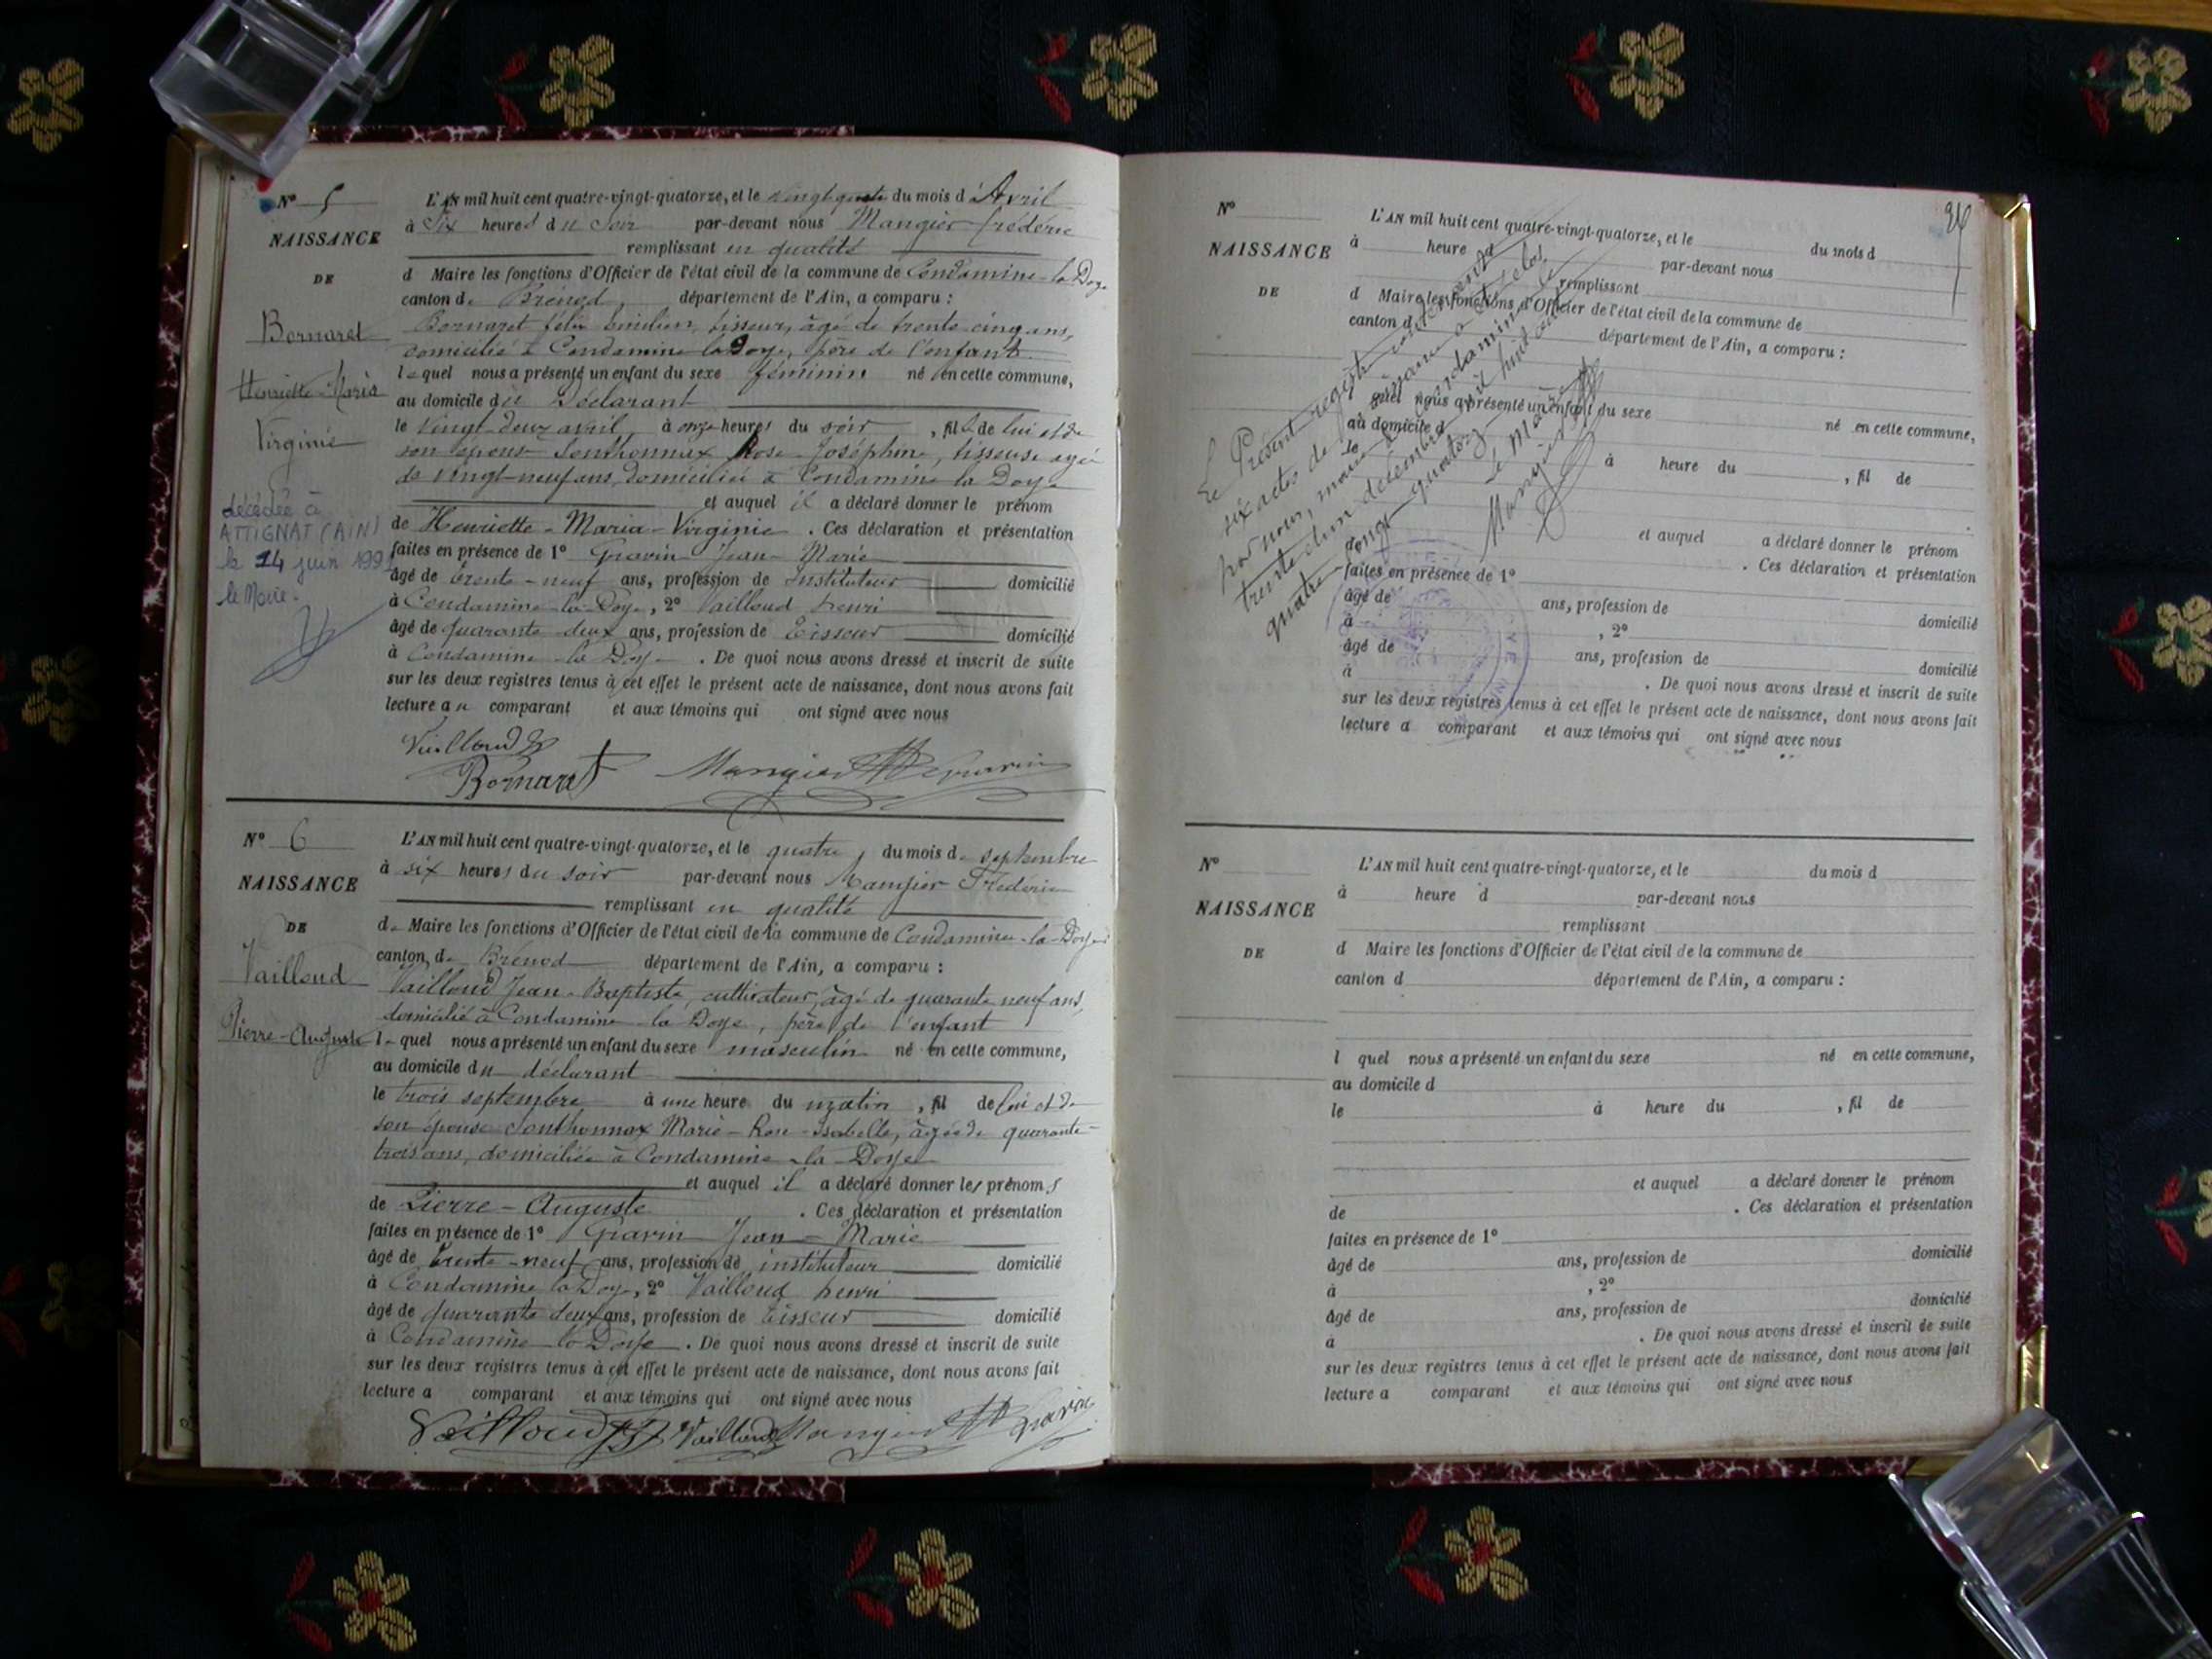 N° 5
NAISSANCE
DE
Bornaret
Henriette-Maria
Virginie
décédée à
ATTIGNAT (AIN)
le 14 juin 199
le Maire.
L'AN mil huit cent quatre-vingt-quatorze, et le vingt quatre du mois d'Avril
à Six heures du Soir par-devant nous Mangier frédéric
remplissant en qualité
d Maire les fonctions d'Officier de l'état civil de la commune de Condamine-la-Doye
canton de Brénod, département de l'Ain, a comparu :
Bornaret félix Emilien, tisseur, âgé de trente cinq ans,
domicilié à Condamine la Doye, père de l'enfant
lequel nous a présenté un enfant du sexe féminin né en cette commune,
au domicile du Déclarant
le Vingt-deux avril, à onze heures du soir, fille de lui et de
son épouse Sonthonnax Rose Joséphine, tisseuse agée
de vingt-neuf ans, domiciliée à Condamine la Doye
et auquel il a déclaré donner le prénom
de Henriette-Maria-Virginie. Ces déclaration et présentation
faites en présence de 1° Gravin Jean-Marie
âgé de trente-neuf ans, profession de Instituteur domicilié
à Condamine-la-Doye, 2° Vailloud henri
âgé de quarante deux ans, profession de Tisseur domicilié
à Condamine-la Doye. De quoi nous avons dressé et inscrit de suite
sur les deux registres tenus à cet effet le présent acte de naissance, dont nous avons fait
lecture au comparant et aux témoins qui ont signé avec nous
Vailloud
Bornaret Mangier Gravin
N° 6
NAISSANCE
DE
Vailloud
Pierre-Auguste
L'AN mil huit cent quatre-vingt-quatorze, et le quatre, du mois de septembre
à six heures du soir par-devant nous Mangier Frédéric
remplissant en qualité
de Maire les fonctions d'Officier de l'état civil de la commune de Condamine-la-Doye
canton de Brénod département de l'Ain, a comparu :
Vailloud Jean-Baptiste, cultivateur, âgé de quarante neuf ans,
domicilié à Condamine-la Doye, père de l'enfant
lequel nous a présenté un enfant du sexe masculin né en cette commune,
au domicile du déclarant
le trois septembre à une heure du matin, fil de lui et de
son épouse Sonthonnax Marie-Rose-Isabelle, âgée de quarante-
trois ans, domiciliée à Condamine-la-Doye
et auquel il a déclaré donner les prénoms
de Pierre-Auguste. Ces déclaration et présentation
faites en présence de 1° Gravin Jean-Marie
âgé de trente-neuf ans, profession de instituteur domicilié
à Condamine la Doye, 2° Vailloud henri
âgé de quarante deux ans, profession de Tisseur domicilié
à Condamine la Doye. De quoi nous avons dressé et inscrit de suite
sur les deux registres tenus à cet effet le présent acte de naissance, dont nous avons fait
lecture a comparant et aux témoins qui ont signé avec nous
Vailloud Vailloud Mangier Gravin
N°
NAISSANCE
DE
L'AN mil huit cent quatre-vingt-quatorze, et le du mois d
à heure d par-devant nous
remplissant
d Maire les fonctions d'Officier de l'état civil de la commune de
canton d département de l'Ain, a comparu :
quel nous a présenté un enfant du sexe né en cette commune,
au domicile d
le à heure du , fil de
et auquel a déclaré donner le prénom
. Ces déclaration et présentation
faites en présence de 1°
âgé de ans, profession de domicilié
à , 2°
âgé de ans, profession de domicilié
à . De quoi nous avons dressé et inscrit de suite
sur les deux registres tenus à cet effet le présent acte de naissance, dont nous avons fait
lecture a comparant et aux témoins qui ont signé avec nous
Le Présent registre contenant
six actes de naissance a été clos
par nous, maire de Condamine le
trente et un décembre mil huit cent
quatre-vingt-quatorze
Le Maire
Mangier
N°
NAISSANCE
DE
L'AN mil huit cent quatre-vingt-quatorze, et le du mois d
à heure d par-devant nous
remplissant
d Maire les fonctions d'Officier de l'état civil de la commune de
canton d département de l'Ain, a comparu :
l quel nous a présenté un enfant du sexe né en cette commune,
au domicile d
le à heure du , fil de
et auquel a déclaré donner le prénom
de . Ces déclaration et présentation
faites en présence de 1°
âgé de ans, profession de domicilié
à , 2°
âgé de ans, profession de domicilié
à . De quoi nous avons dressé et inscrit de suite
sur les deux registres tenus à cet effet le présent acte de naissance, dont nous avons fait
lecture a comparant et aux témoins qui ont signé avec nous